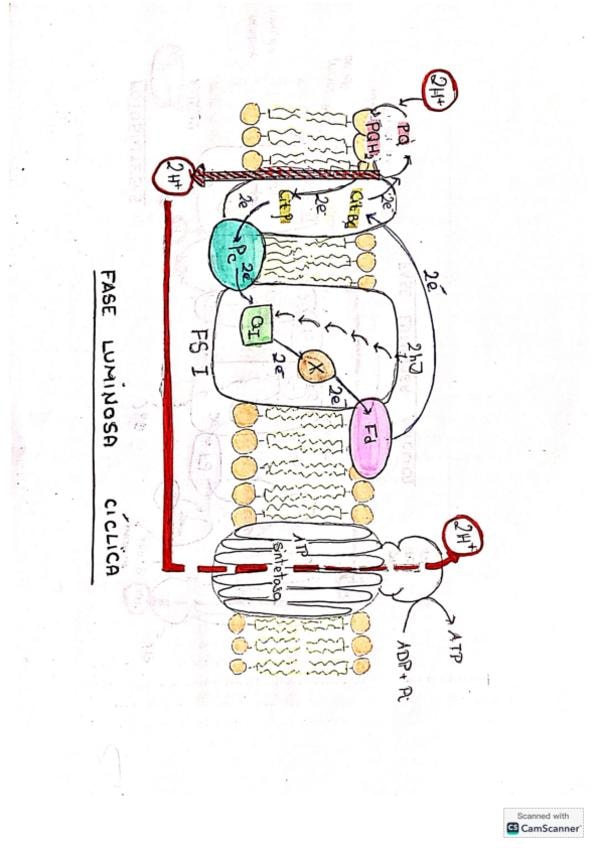 2H+
PQ
PQH2
2e⁻
Cit B6
2e⁻
Cit f
2e⁻
2H+
Pc
2e⁻
QI
2e⁻
X
2e⁻
Fd
2hυ
2e⁻
FS I
ATP
sintetasa
2H+
ATP
ADP + Pi
FASE LUMINOSA CÍCLICA
Scanned with
CS CamScanner